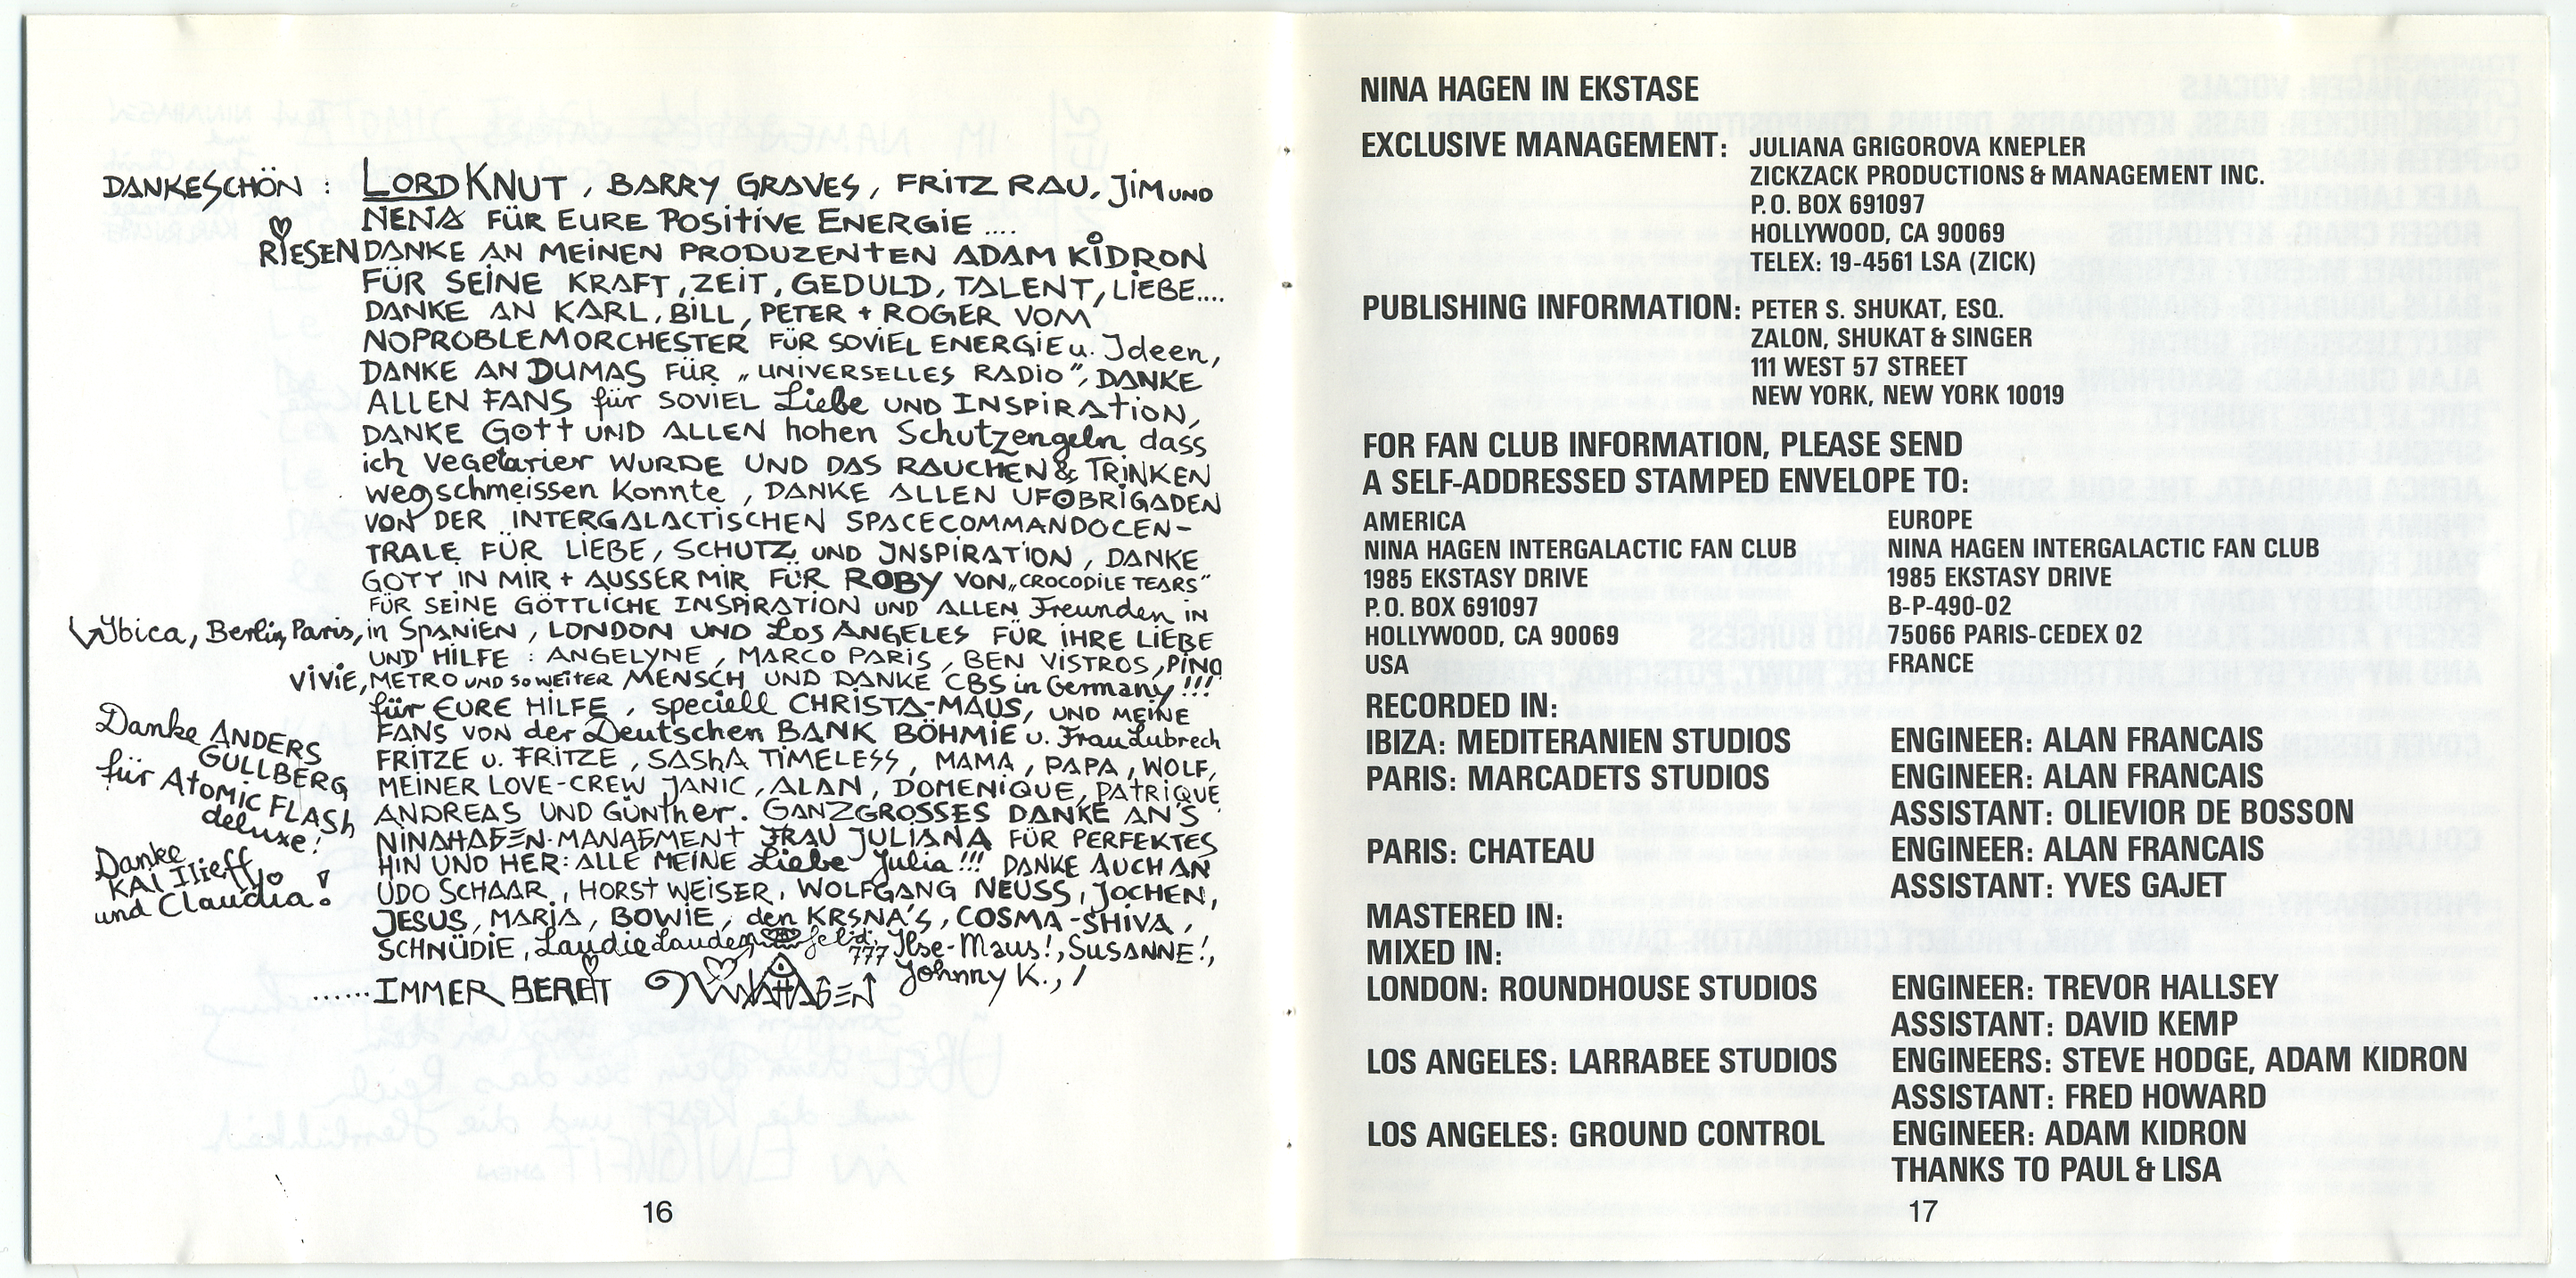 DANKESCHÖN : LORD KNUT, BARRY GRAVES, FRITZ RAU, JiM UND
NENA FÜR EURE POSITIVE ENERGIE ....
RIESEN DANKE AN MEINEN PRODUZENTEN ADAM KIDRON
FÜR SEINE KRAFT, ZEIT, GEDULD, TALENT, LIEBE....
DANKE AN KARL, BILL, PETER + ROGER VOM
NOPROBLEMORCHESTER FÜR SOVIEL ENERGIE u. Ideen,
DANKE AN DUMAS FÜR „UNIVERSELLES RADIO”, DANKE
ALLEN FANS für SOVIEL Liebe UND INSPIRATION,
DANKE GOTT UND ALLEN hohen Schutzengeln dass
ich Vegetarier WURDE UND DAS RAUCHEN & TRINKEN
wegschmeissen konnte, DANKE ALLEN UFOBRIGADEN
VON DER INTERGALACTISCHEN SPACECOMMANDOCEN-
TRALE FÜR LIEBE, SCHUTZ UND INSPIRATION, DANKE
GOTT IN MIR + AUSSER MIR FÜR ROBY VON „CROCODILE TEARS”
FÜR SEINE GÖTTLICHE INSPIRATION UND ALLEN Freunden IN
Ybica, Berlin, Paris, in SPANIEN, LONDON UND LOS ANGELES FÜR IHRE LIEBE
UND HILFE : ANGELYNE, MARCO PARIS, BEN VISTROS, PINO
VIVIE, METRO UND SO WEITER MENSCH UND DANKE CBS in Germany!!!
für EURE HILFE, speciell CHRISTA-MAUS, UND MEINE
FANS VON der Deutschen BANK BÖHMIE u. Frau Lubrech
FRITZE u. FRITZE, SASHA TIMELESS, MAMA, PAPA, WOLF,
MEINER LOVE-CREW JANIC, ALAN, DOMENIQUE, PATRIQUE
ANDREAS UND Günther. GANZGROSSES DANKE AN'S
NINAHAGEN-MANAGMENT FRAU JULIANA FÜR PERFEKTES
HIN UND HER: ALLE MEINE Liebe Julia!!! DANKE AUCH AN
UDO SCHAAR, HORST WEISER, WOLFGANG NEUSS, JOCHEN,
JESUS, MARIA, BOWIE, den KRSNA'S, COSMA-SHIVA,
SCHNÜDIE, Laudie Lauden feld, 777 Ilse-Maus!, SUSANNE!,
Johnny K., /
......IMMER BEREIT NINAHAGEN
Danke ANDERS
GULLBERG
für Atomic FLASH
deluxe!
Danke
KAI Ilieff
und Claudia!
16
NINA HAGEN IN EKSTASE
EXCLUSIVE MANAGEMENT: JULIANA GRIGOROVA KNEPLER
ZICKZACK PRODUCTIONS & MANAGEMENT INC.
P.O. BOX 691097
HOLLYWOOD, CA 90069
TELEX: 19-4561 LSA (ZICK)
PUBLISHING INFORMATION: PETER S. SHUKAT, ESQ.
ZALON, SHUKAT & SINGER
111 WEST 57 STREET
NEW YORK, NEW YORK 10019
FOR FAN CLUB INFORMATION, PLEASE SEND
A SELF-ADDRESSED STAMPED ENVELOPE TO:
AMERICA
NINA HAGEN INTERGALACTIC FAN CLUB
1985 EKSTASY DRIVE
P.O. BOX 691097
HOLLYWOOD, CA 90069
USA
EUROPE
NINA HAGEN INTERGALACTIC FAN CLUB
1985 EKSTASY DRIVE
B-P-490-02
75066 PARIS-CEDEX 02
FRANCE
RECORDED IN:
IBIZA: MEDITERANIEN STUDIOS ENGINEER: ALAN FRANCAIS
PARIS: MARCADETS STUDIOS ENGINEER: ALAN FRANCAIS
ASSISTANT: OLIEVIOR DE BOSSON
PARIS: CHATEAU ENGINEER: ALAN FRANCAIS
ASSISTANT: YVES GAJET
MASTERED IN:
MIXED IN:
LONDON: ROUNDHOUSE STUDIOS ENGINEER: TREVOR HALLSEY
ASSISTANT: DAVID KEMP
LOS ANGELES: LARRABEE STUDIOS ENGINEERS: STEVE HODGE, ADAM KIDRON
ASSISTANT: FRED HOWARD
LOS ANGELES: GROUND CONTROL ENGINEER: ADAM KIDRON
THANKS TO PAUL & LISA
17